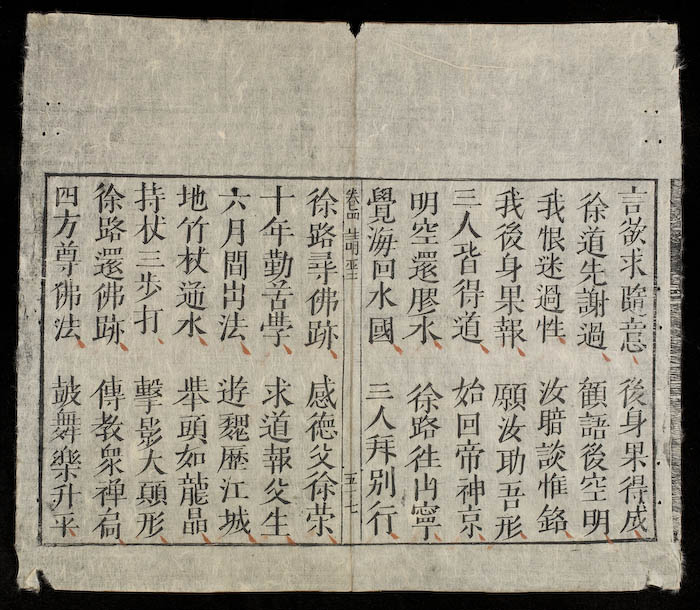 言欲求隨意 後身果得成
徐道先謝過 顧語後空明
我恨迷過性 汝暗談惟銘
我後身果報 願汝助吾形
三人皆得道 始回帝神京
明空還膠水 徐路往山寧
覺海回水國 三人拜別行
五十七
徐路尋佛跡 感德父徐荣
十年勤苦學 求道報父生
六月間出法 遊魏歷江城
地竹杖通水 举頭如龍晶
持杖三步打 擊影大顛形
徐路還佛跡 傳教眾禅扃
四方尊佛法 鼓舞樂升平